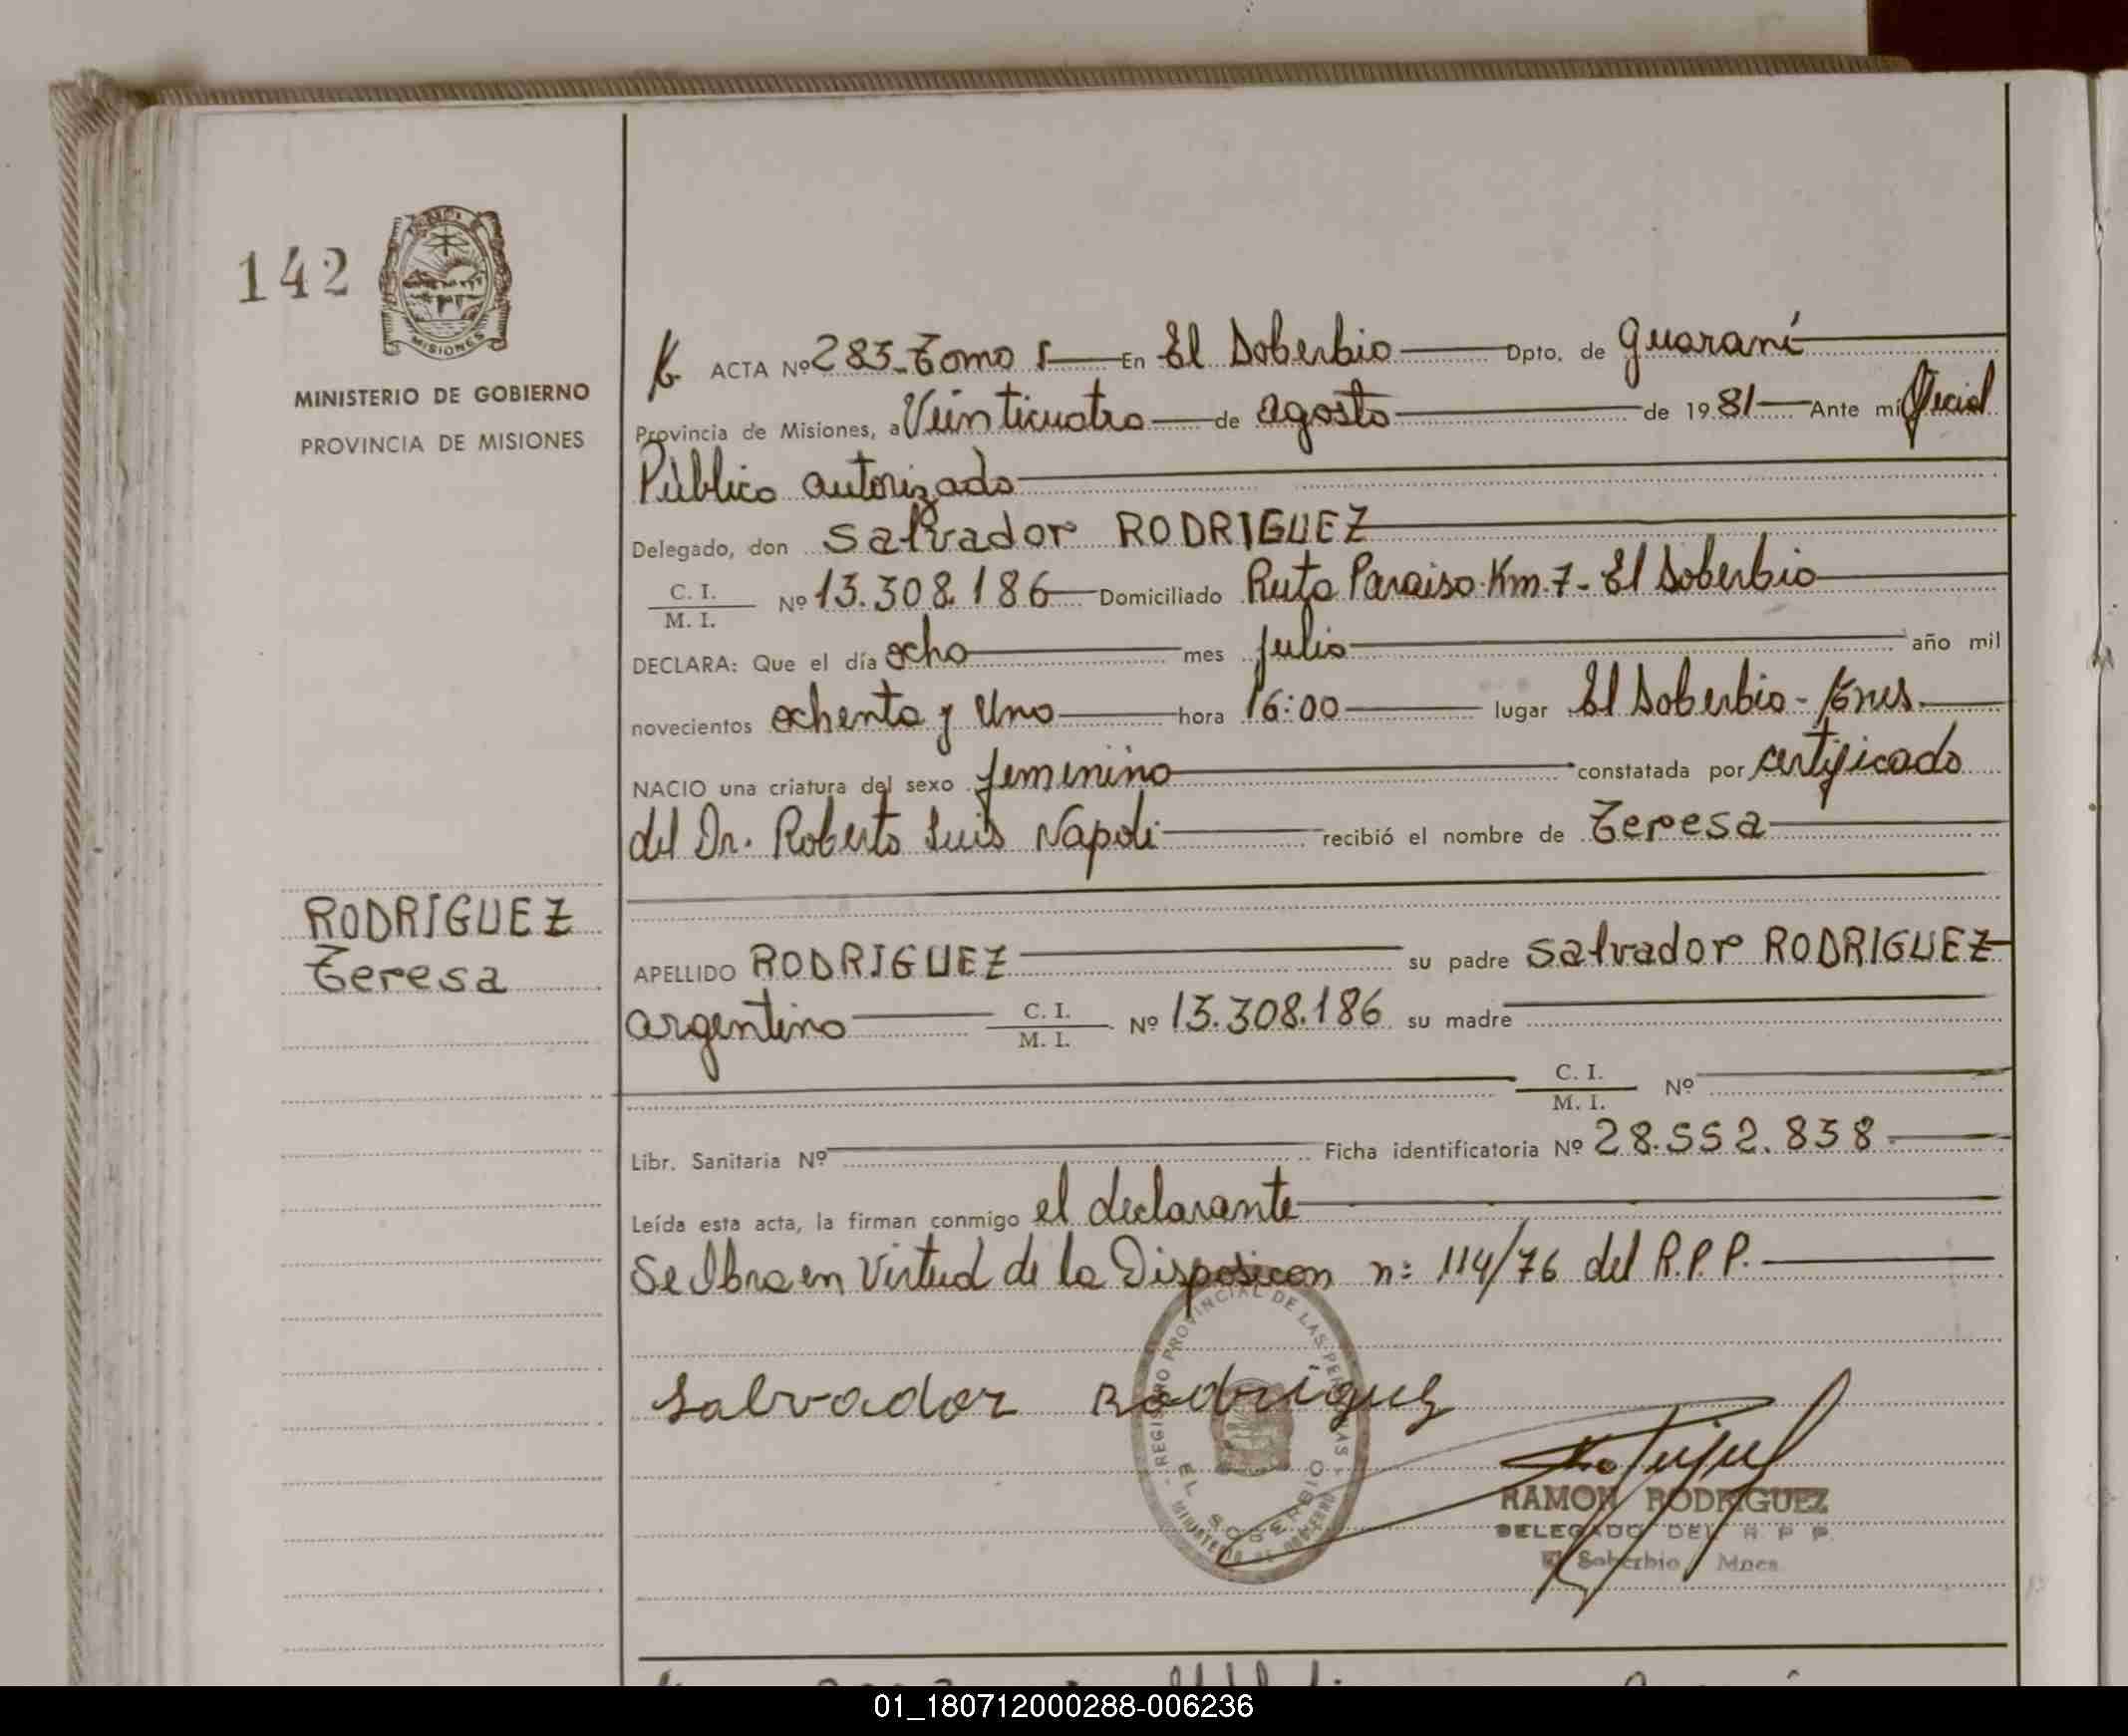 142
MISIONES
MINISTERIO DE GOBIERNO
PROVINCIA DE MISIONES
ACTA Nº 283-Tomo I En El Soberbio Dpto. de Guaraní
Provincia de Misiones, a Veinticuatro de agosto de 1981 Ante mi Oficial
Público autorizado
Delegado, don Salvador RODRIGUEZ
C. I. / M. I. Nº 13.308.186 Domiciliado Ruta Paraiso Km.7- El Soberbio
DECLARA: Que el día ocho mes julio año mil
novecientos ochenta y uno hora 16:00 lugar El Soberbio-
NACIO una criatura del sexo femenino constatada por certificado
del Dr. Roberto Luis Napoli recibió el nombre de Teresa
RODRIGUEZ
Teresa
APELLIDO RODRIGUEZ su padre Salvador RODRIGUEZ
argentino C. I. / M. I. Nº 13.308.186 su madre
C. I. / M. I. Nº
Libr. Sanitaria Nº Ficha identificatoria Nº 28.552.838
Leída esta acta, la firman conmigo el declarante
Se labra en Virtud de la Disposicon nº 114/76 del R.P.P.
REGISTRO PROVINCIAL DE LAS PERSONAS
EL SOBERBIO
MINISTERIO DE GOBIERNO
Salvador Rodriguez
RAMON RODRIGUEZ
DELEGADO DEL R P P
El Soberbio Mnes
01_180712000288-006236